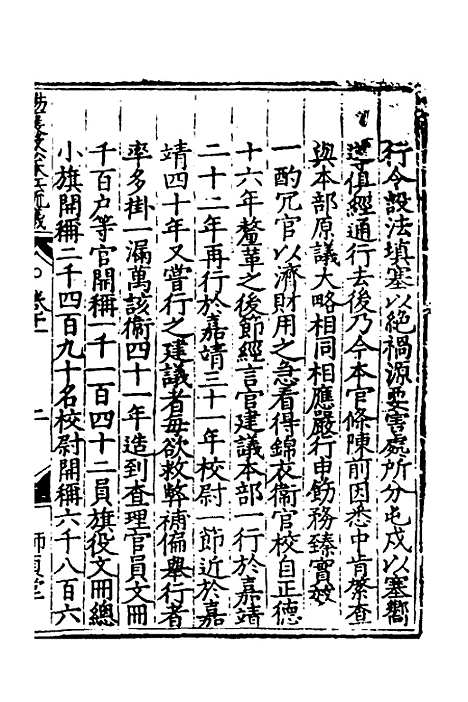 行令設法填塞以絕禍源要害處所分屯戍以塞嚮
導俱經通行去後乃今本官條陳前因悉中肯綮查
與本部原議大略相同相應嚴行申飭務臻實效
一酌冗官以濟財用之急看得錦衣衛官校自正德
十六年釐革之後節經言官建議本部一行於嘉靖
二十二年再行於嘉靖三十一年校尉一節近於嘉
靖四十年又嘗行之建議者每欲救弊補偏舉行者
率多掛一漏萬該衛四十一年造到查理官員文冊
千百戶等官開稱一千一百四十二員旗役文冊總
小旗開稱二千四百九十名校尉開稱六千八百六
卷十
二